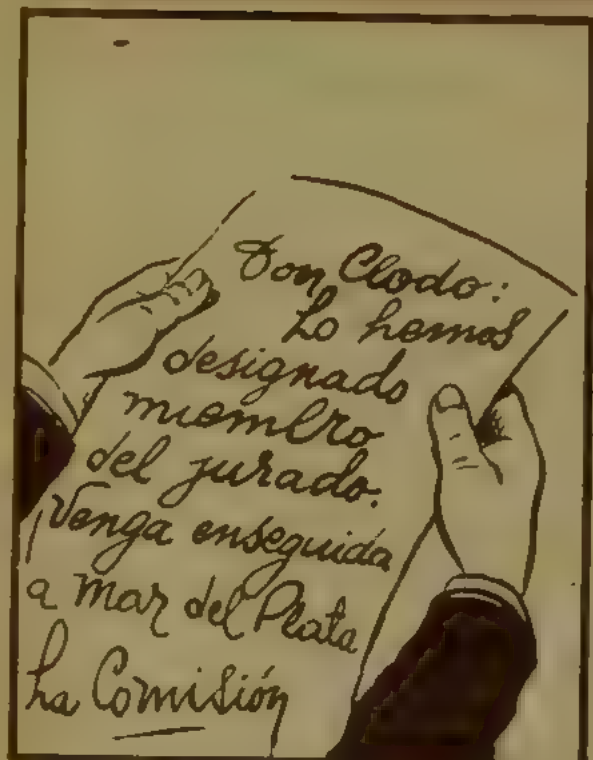 Don Clodo:
Lo hemos
designado
miembro
del jurado.
Venga enseguida
a Mar del Plata
La Comisión